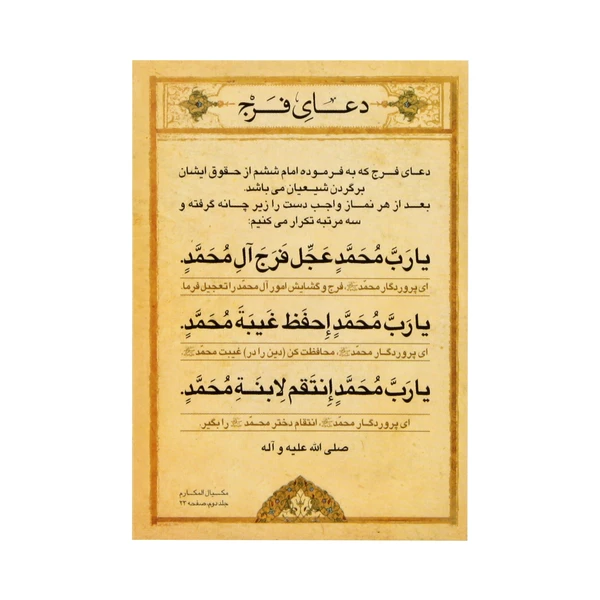 دعای فرج
دعای فرج که به فرموده امام ششم از حقوق ایشان
برگردن شیعیان می باشد.
بعد از هر نماز واجب دست را زیر چانه گرفته و
سه مرتبه تکرار می کنیم:
یا رَبَّ مُحَمَّدٍ عَجِّل فَرَجَ آلِ مُحَمَّدٍ.
ای پروردگار محمّدﷺ، فرج و گشایش امور آل محمّد را تعجیل فرما.
یا رَبَّ مُحَمَّدٍ إحفَظ غَیبَةَ مُحَمَّدٍ.
ای پروردگار محمّدﷺ، محافظت کن (دین را در) غیبت محمّدﷺ.
یا رَبَّ مُحَمَّدٍ إنتَقِم لِابنَةِ مُحَمَّدٍ.
ای پروردگار محمّدﷺ، انتقام دختر محمّدﷺ را بگیر.
صلی الله علیه و آله
مکیال المکارم
جلد دوم، صفحه ۲۲